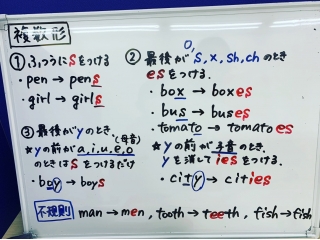 複数形
① ふつうにsをつける
・pen → pens
・girl → girls
② 最後が o, s, x, sh, ch のとき
esをつける.
・box → boxes
・bus → buses
・tomato → tomatoes
③ 最後が y のとき
(母音)
☆ yの前が a, i, u, e, o
のときは s をつけるだけ
・boy → boys
☆ yの前が子音のとき
yを消して ies をつける.
・city → cities
不規則 man → men, tooth → teeth, fish → fish